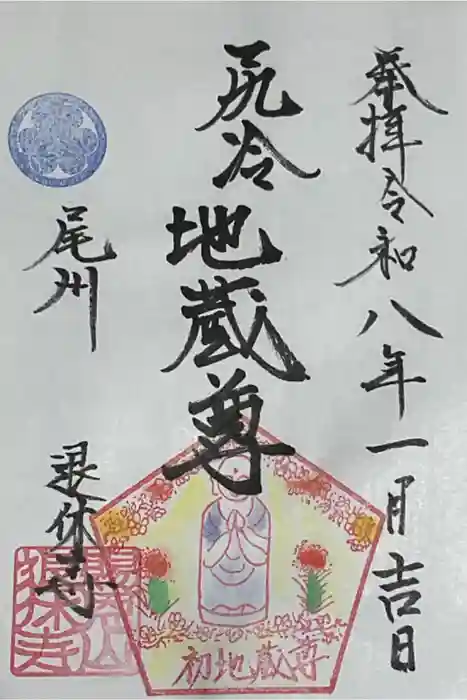 奉拝令和八年一月吉日
尻冷地蔵尊
尾州
退休寺
初地蔵尊